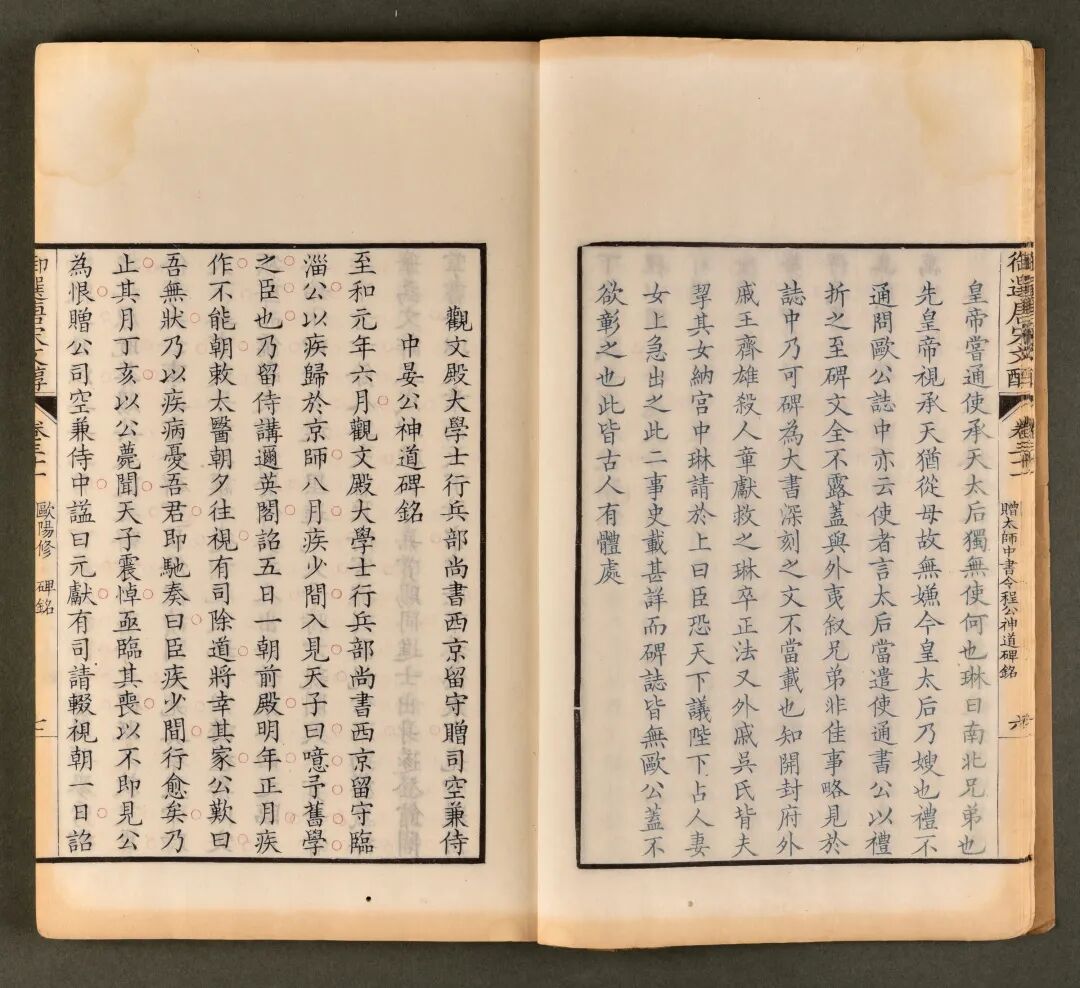 御選唐宋文醇
卷三十一
贈太師中書令程公神道碑銘
六
皇帝嘗通使承天太后獨無使何也琳曰南北兄弟也
先皇帝視承天猶從母故無嫌今皇太后乃嫂也禮不
通問歐公誌中亦云使者言太后當遣使通書公以禮
折之至碑文全不露蓋與外夷叙兄弟非佳事略見於
誌中乃可碑為大書深刻之文不當載也知開封府外
戚王齊雄殺人章獻救之琳卒正法又外戚吳氏背夫
挈其女納宮中琳請於上曰臣恐天下議陛下占人妻
女上急出之此二事史載甚詳而碑誌皆無歐公蓋不
欲彰之也此皆古人有體處
觀文殿大學士行兵部尚書西京留守贈司空兼侍
中晏公神道碑銘
至和元年六月觀文殿大學士行兵部尚書西京留守臨
淄公以疾歸於京師八月疾少間入見天子曰噫予舊學
之臣也乃留侍講邇英閣詔五日一朝前殿明年正月疾
作不能朝敕太醫朝夕往視有司除道將幸其家公歎曰
吾無狀乃以疾病憂吾君即馳奏曰臣疾少間行愈矣乃
止其月丁亥以公薨聞天子震悼亟臨其喪以不即見公
為恨贈公司空兼侍中謚曰元獻有司請輟視朝一日詔
御選唐宋文醇
歐陽修
碑銘